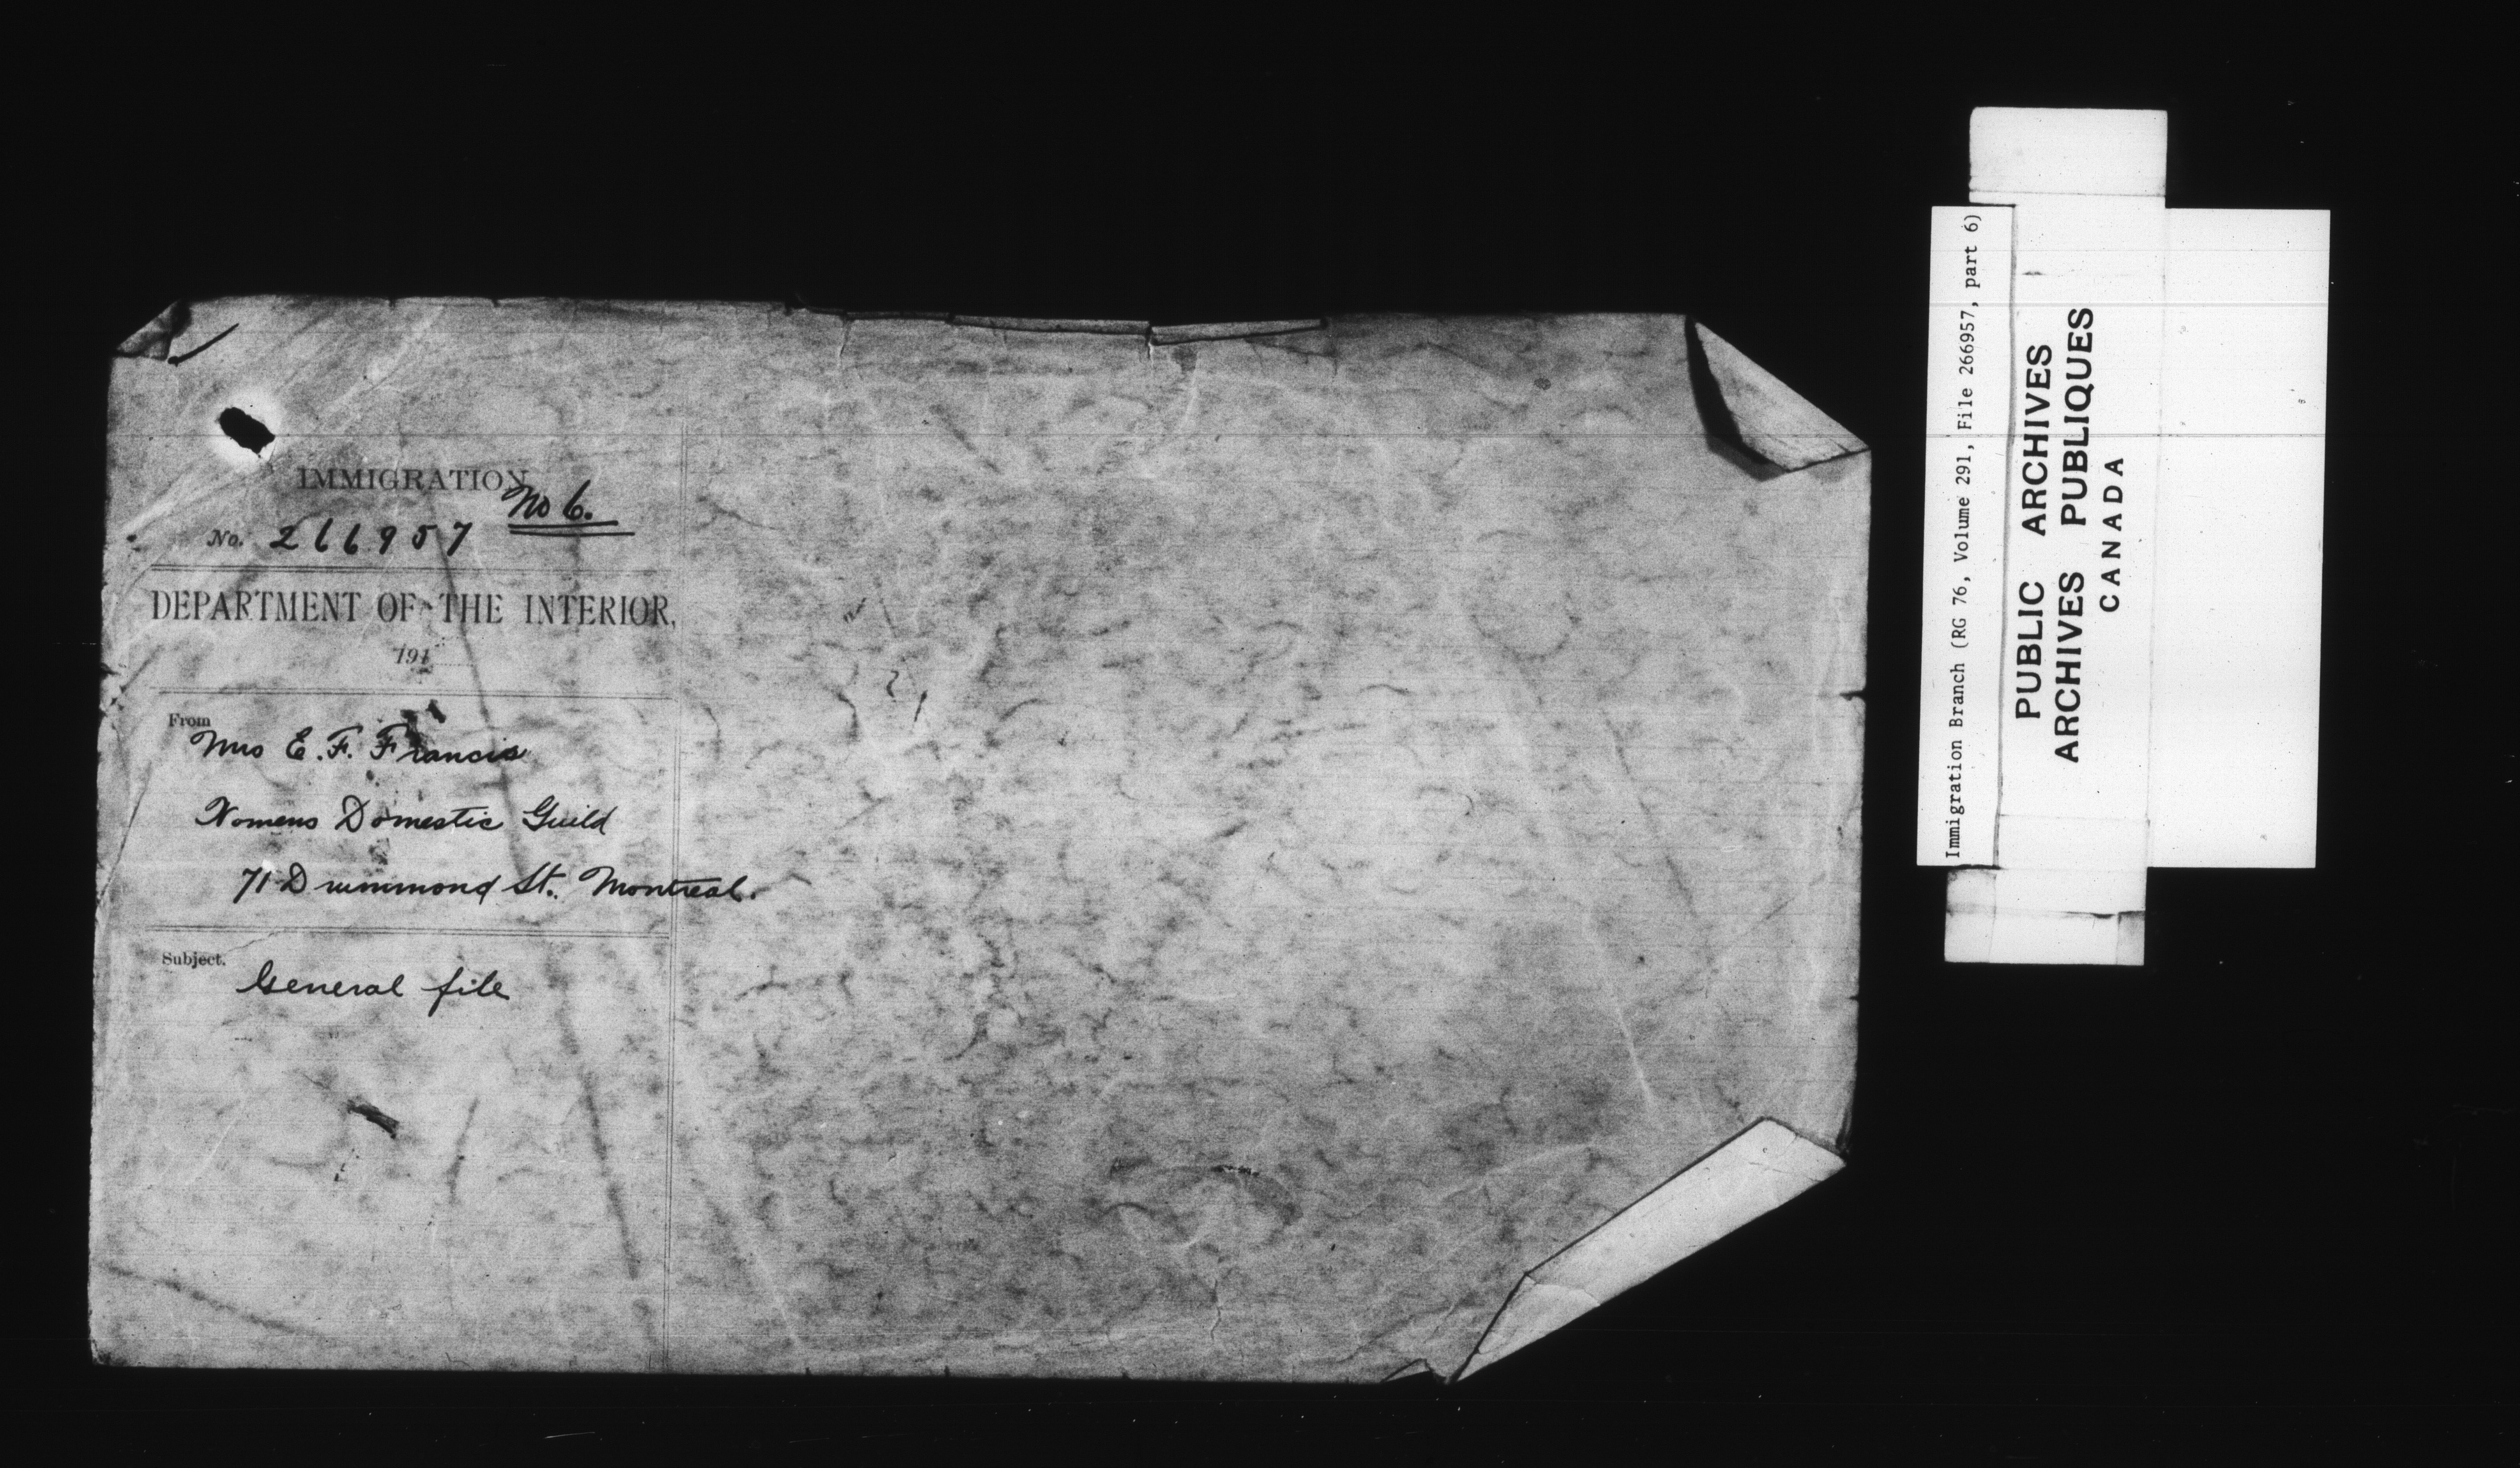 IMMIGRATION
No 6.
No. 266957
DEPARTMENT OF THE INTERIOR,
191
From
Mrs E. F. Francis
Womens Domestic Guild
71 Drummond St. Montreal.
Subject.
General file
Immigration Branch (RG 76, Volume 291, File 266957, part 6)
PUBLIC ARCHIVES
ARCHIVES PUBLIQUES
CANADA